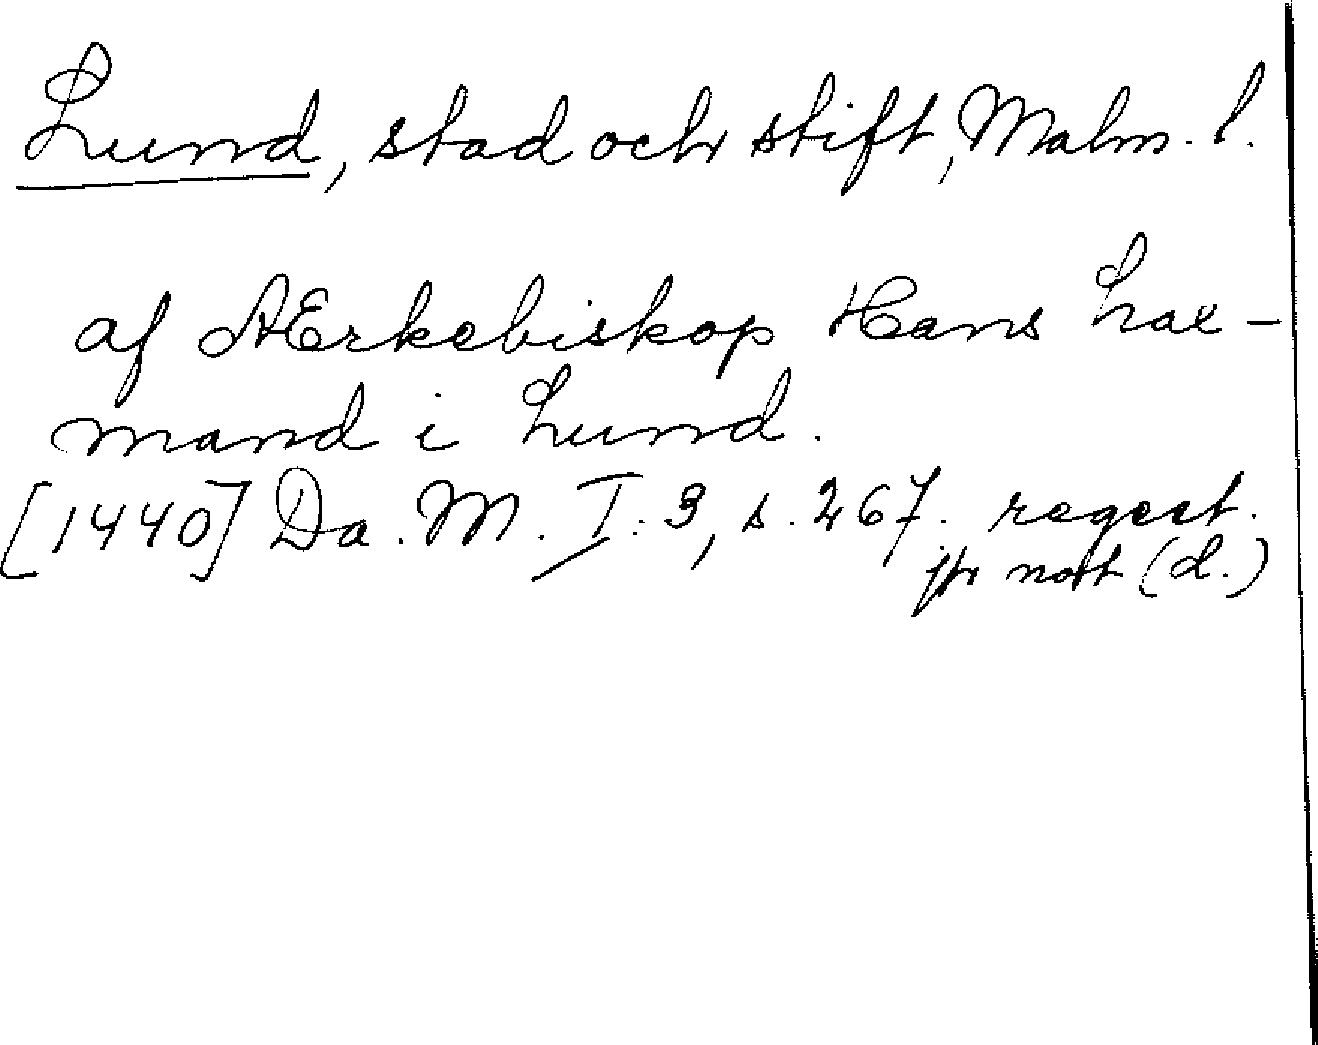 Lund, stad och stift, Malm. l.
af AErkebiskop Hans Lax-
mand i Lund.
[1440] Da. M. I: 3, s. 267. regest.
jfr not (d.)